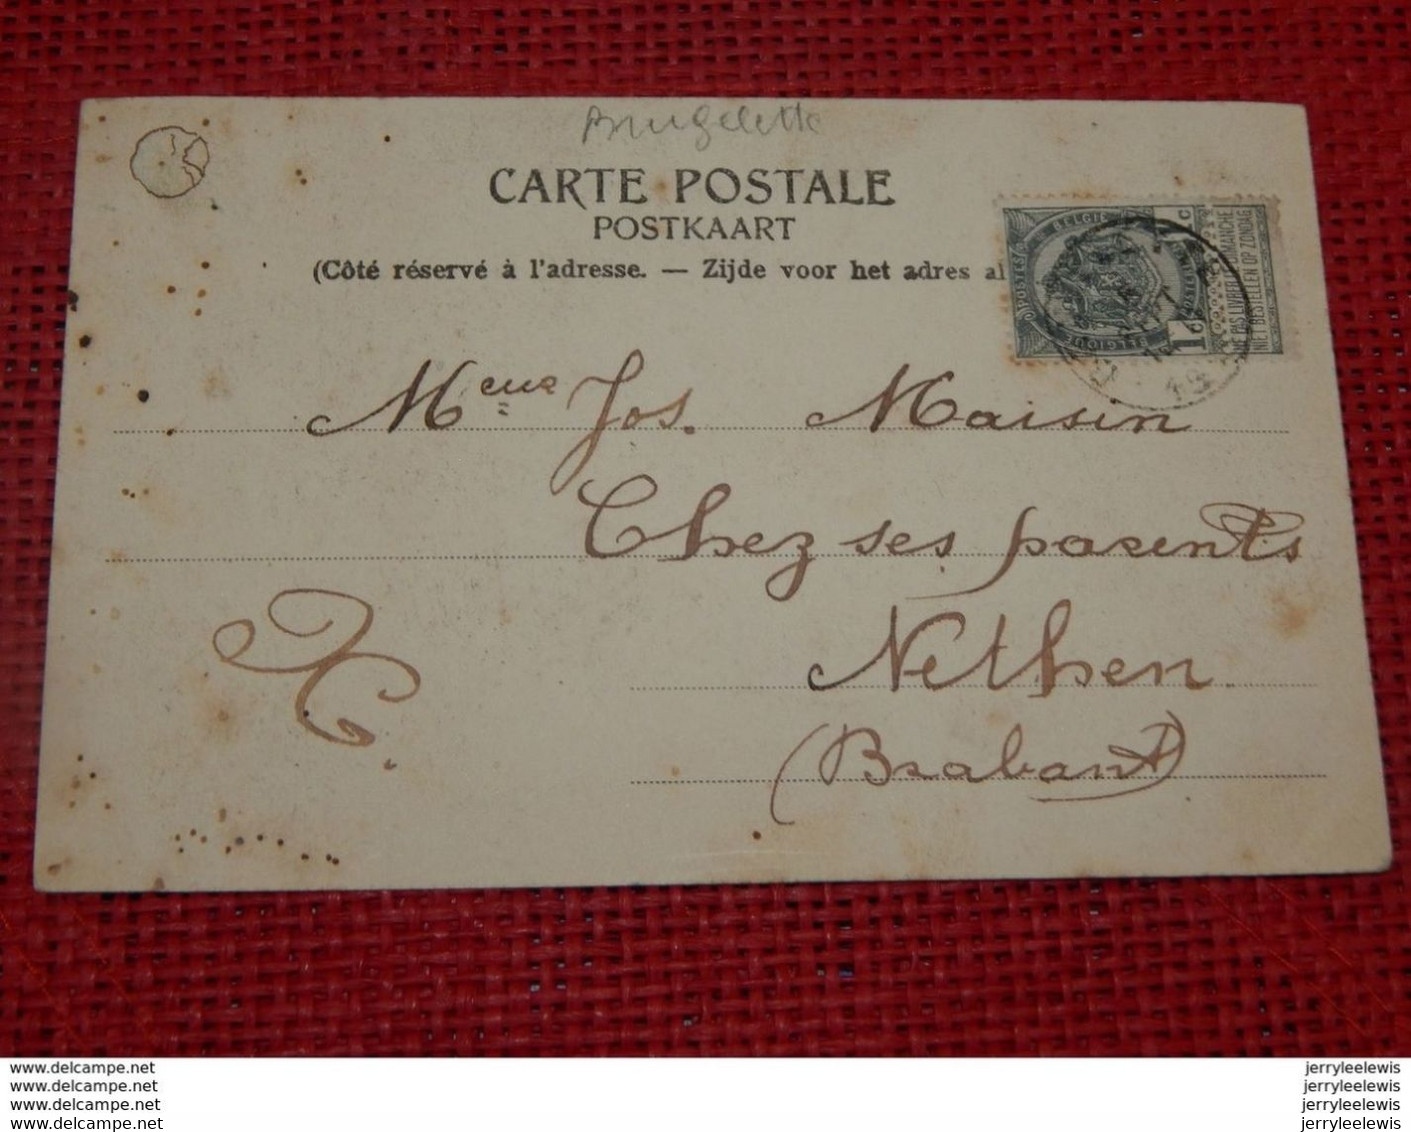 Brugelette
CARTE POSTALE
POSTKAART
(Côté réservé à l'adresse. — Zijde voor het adres al
POSTES BELGIE BELGIQUE POSTERIJEN
1c 1c
NE PAS LIVRER LE DIMANCHE
NIET BESTELLEN OP ZONDAG
Melle Jos. Maisin
Chez ses parents
Nethen
(Brabant)
www.delcampe.net
www.delcampe.net
www.delcampe.net
www.delcampe.net
jerryleelewis
jerryleelewis
jerryleelewis
jerryleelewis